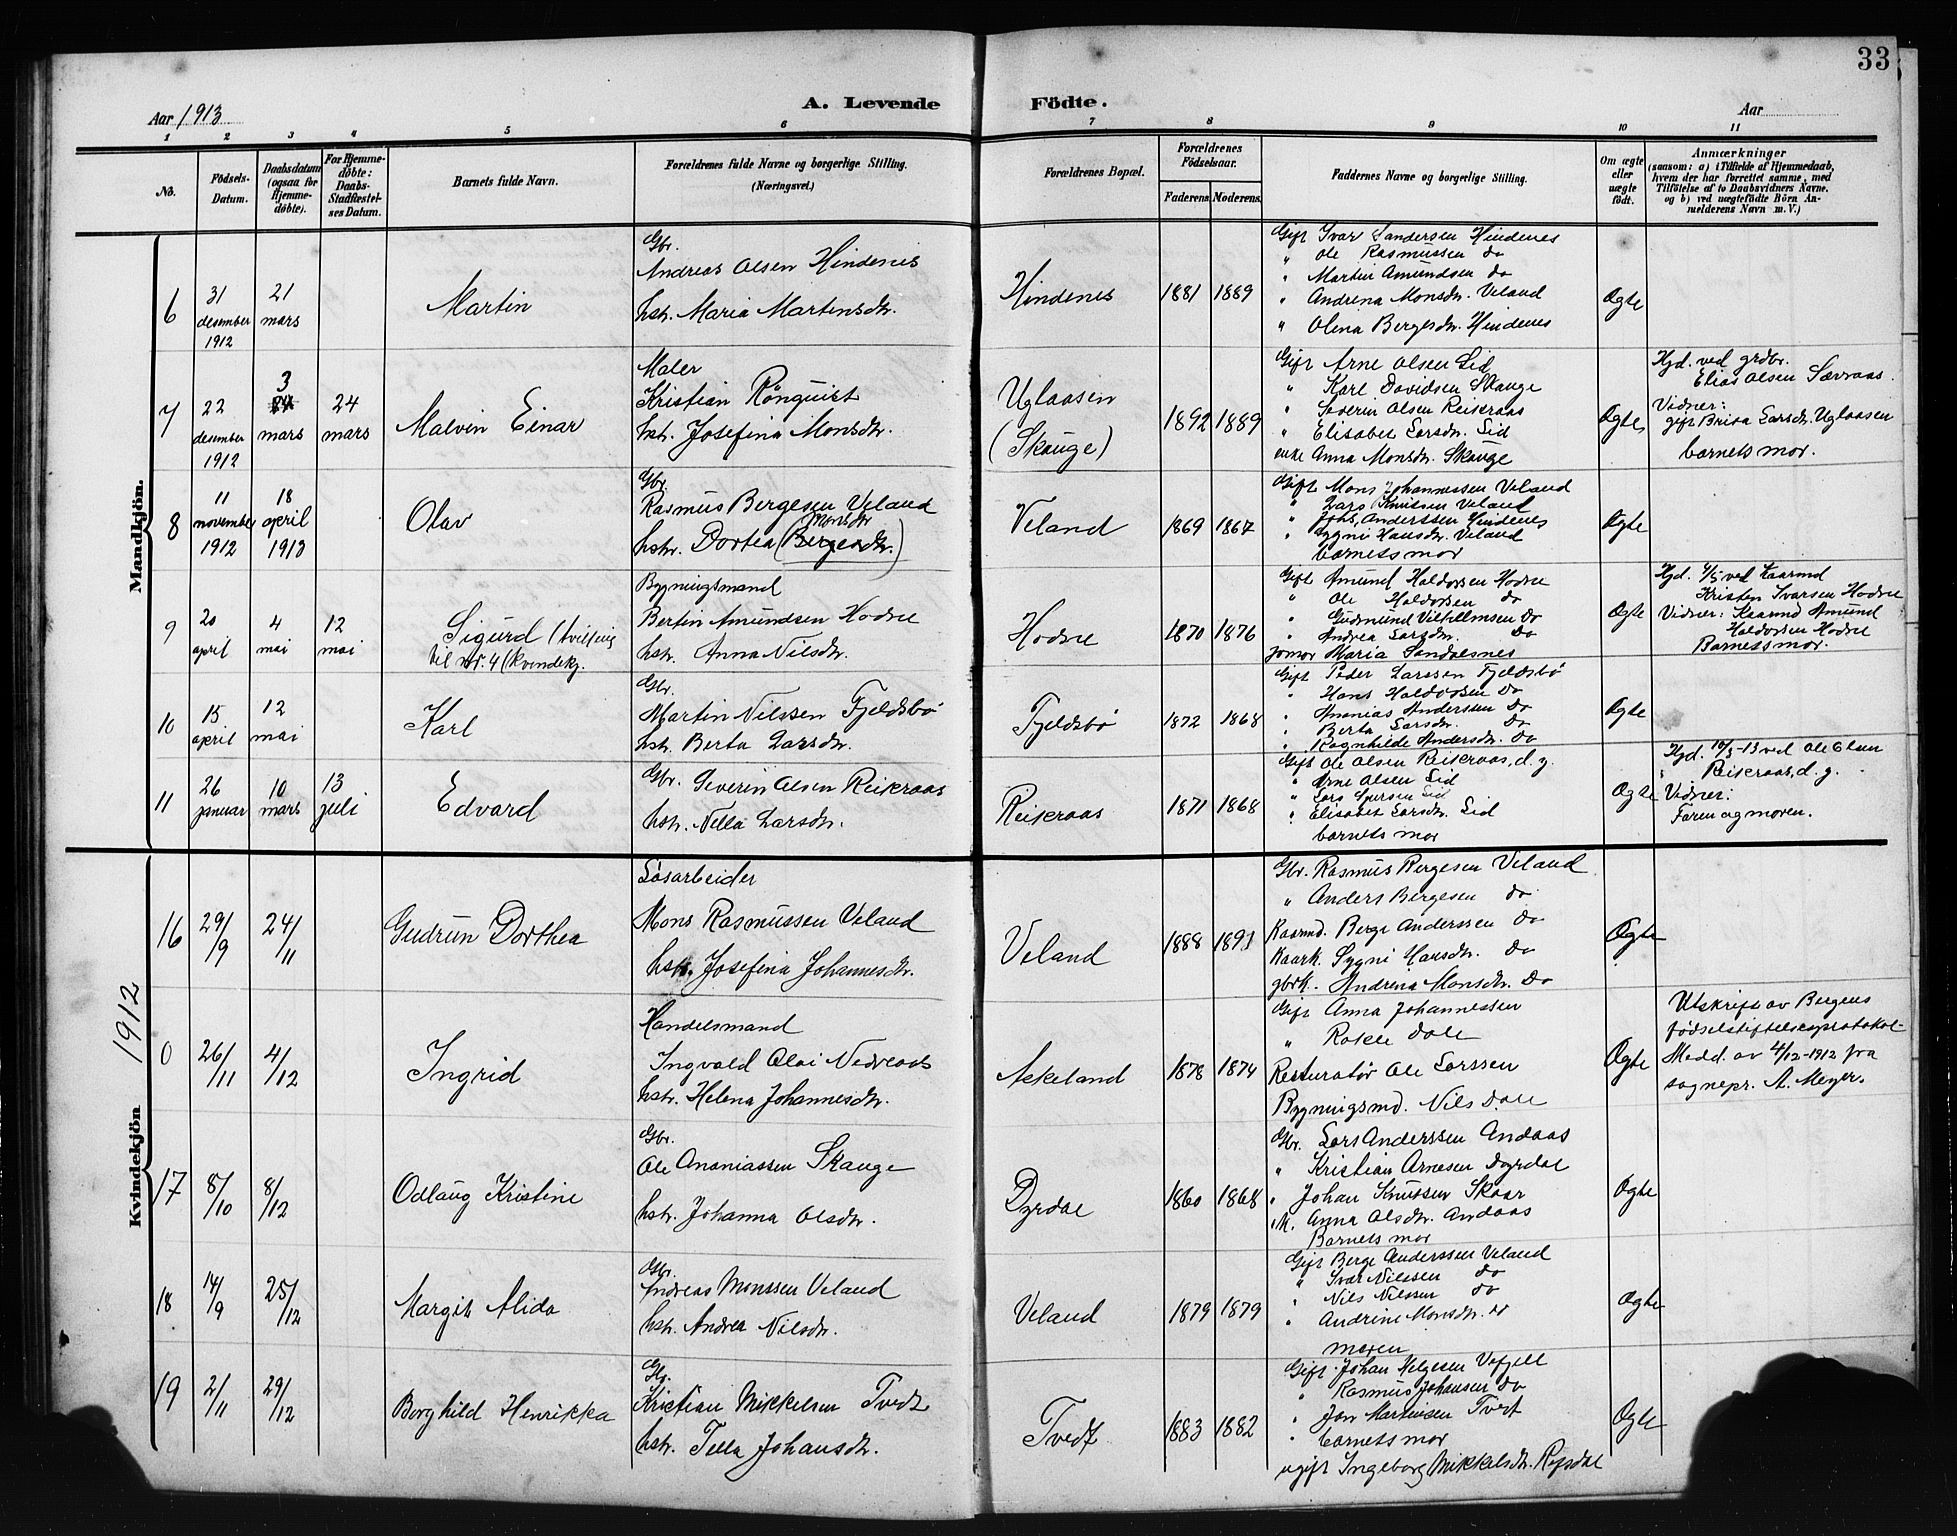 33
Aar 1913
A. Levende Födte.
Aar
1 2 3 4 5 6 7 8 9 10 11
No.
Födsels-
Datum.
Daabsdatum
(ogsaa for
Hjemme-
döbte).
For Hjemme-
döbte:
Daabs-
Stadfæstel-
ses Datum.
Barnets fulde Navn.
Forældrenes fulde Navne og borgerlige Stilling.
(Næringsvei.)
Forældrenes Bopæl.
Forældrenes
Födselsaar.
Faderens Moderens
Faddernes Navne og borgerlige Stilling.
Om ægte
eller
uægte
födt.
Anmærkninger
(saasom: a) i Tilfælde af Hjemmedaab,
hvem der har forrettet samme, med
Tilföielse af to Daabsvidners Navne.
og b) ved uægtefödte Börn An-
melderens Navn m. V.)
Mandkjön.
6
31
desember
1912
21
mars
Martin
Gbr.
Andreas Olsen Hindenes
hstr. Maria Martensdtr.
Hindenes
1881 1889
Gift Ivar Sandersen Hindenes
" Ole Rasmussen do
" Martin Amundsen do
" Andrina Monsdtr. Veland
" Olina Bergesdtr. Hindenes
Ægte
7
22
desember
1912
3
mars
24
mars
Malvin Einar
Maler
Kristian Rönquist
hstr. Josefina Monsdtr.
Uglaasen
(Skauge)
1892 1889
Gift Arne Olsen Lid
" Karl Davidsen Skauge
" Severin Olsen Reikraas
" Elisabet Larsdtr. Lid
enke Anna Monsdtr. Skauge
Ægte
Hjd. ved grdbr.
Elias Olsen Sævraas.
Vidner:
gift Brita Larsdtr. Uglaasen
barnets mor.
8
11
november
1912
18
april
1913
Olav
Gbr.
Rasmus Bergesen Veland
Monsdtr
hstr. Dortea (Bergesdtr.)
Veland
1869 1867
Gift Mons Johannessen Veland
" Lars Knutsen Veland
" Johs. Anderssen Hindenes
" Sygni Hansdtr. Veland
barnets mor
Ægte
9
20
april
4
mai
12
mai
Sigurd (tvilling
til nr. 4 (kvindekj.
Bygningsmand
Bertin Amundsen Hodne
hstr. Anna Nilsdtr.
Hodne
1870 1876
Gift Amund Haldorsen Hodne
" Ole Haldorsen do
" Gudmund Vilhelmsen do
" Andrea Larsdtr. do
jomor Maria Sandalsnes
Ægte
Hjd. 4/5 ved kaarmd
Kristen Ivarsen Hodne
Vidner: Kaarmd Amund
Haldorsen Hodne
Barnets mor.
10
15
april
12
mai
Karl
Gbr.
Martin Nilssen Fjeldsbö
hstr. Berta Larsdtr.
Fjeldsbö
1872 1868
Gift Peder Larssen Fjeldsbö
" Hans Haldorsen do
" Ananias Anderssen do
" Berta Larsdtr. do
" Ragnhilde Andersdtr. do
Ægte
11
26
januar
10
mars
13
juli
Edvard
Gbr. Severin Olsen Reikraas
hstr. Nella Larsdtr.
Reikraas
1871 1868
Gift Ole Olsen Reikraas, d. y.
" Arne Olsen Lid
" Lars Iversen Lid
" Elisabet Larsdtr. Lid
barnets mor
Ægte
Hjd. 10/3-13 ved Ole Olsen
Reikraas, d. y.
Vidner:
Faren og moren.
Kvindekjön 1912
16
29/9
24/11
Gudrun Dorthea
Lösarbeider
Mons Rasmussen Veland
hstr. Josefina Johannesdtr.
Veland
1888 1891
Gbr. Rasmus Bergesen Veland
" Anders Bergesen do
Kaarmd. Berge Anderssen do
Kaark. Sygni Hansdtr. do
gbrk. Andrina Monsdtr. do
Ægte
0
26/11
4/12
Ingrid
Handelsmand
Ingvald Olai Nedreaas
hstr. Helena Johannesdtr.
Askeland
1878 1874
Gift Anna Johannessen
" Rakel Dale
Restauratör Ole Larssen
Bygningsmd. Nils Dale
Ægte
Utskrift av Bergens
födselsstiftelsesprotokol-
Medd. av 4/12-1912 fra
sognepr. A. Meyer.
17
8/10
8/12
Odlaug Kristine
Gbr.
Ole Ananiassen Skauge
hstr. Johanna Olsdtr.
Dyrdal
1860 1868
Gbr. Lars Anderssen Andaas
" Kristian Arnesen Dyrdal
" Johan Knutsen Skaar
" k. Anna Olsdtr. Andaas
Barnets mor
Ægte
18
14/9
25/12
Margit Alida
Gbr.
Andreas Monssen Veland
hstr. Andrea Nilsdtr.
Veland
1879 1879
Gift Berge Anderssen Veland
" Ivar Nilssen do
" Nils Nilssen do
" Andrine Monsdtr. do
moren
Ægte
19
2/11
29/12
Borghild Henrikka
Gbr.
Kristian Mikkelsen Tvedt
hstr. Tella Johansdtr.
Tvedt
1883 1882
Gift Johan Helgesen Vefjell
" Rasmus Johansen do
" Jon Martinsen Tvedt
" barnets mor
ugift Ingeborg Mikkelsdtr. Rypdal
Ægte